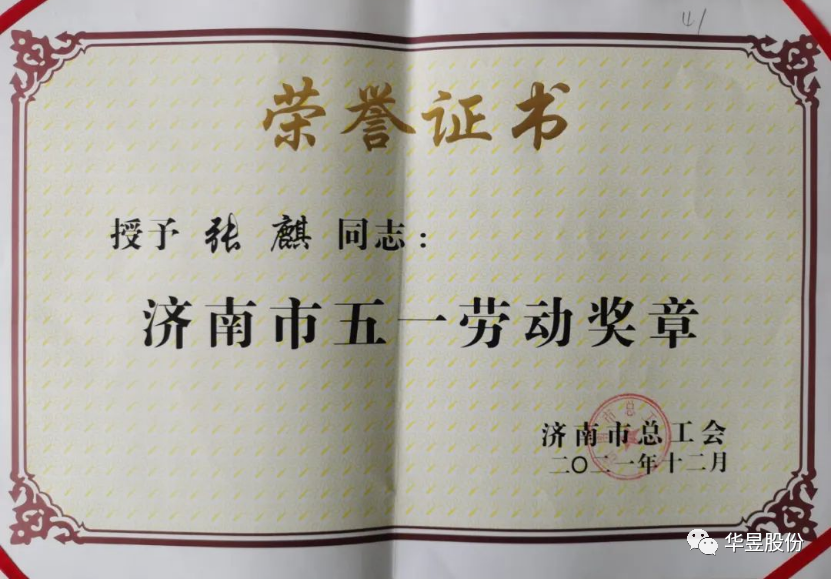 荣誉证书
授予 张麒 同志：
济南市五一劳动奖章
济南市总工会
二〇二一年十二月
华昱股份